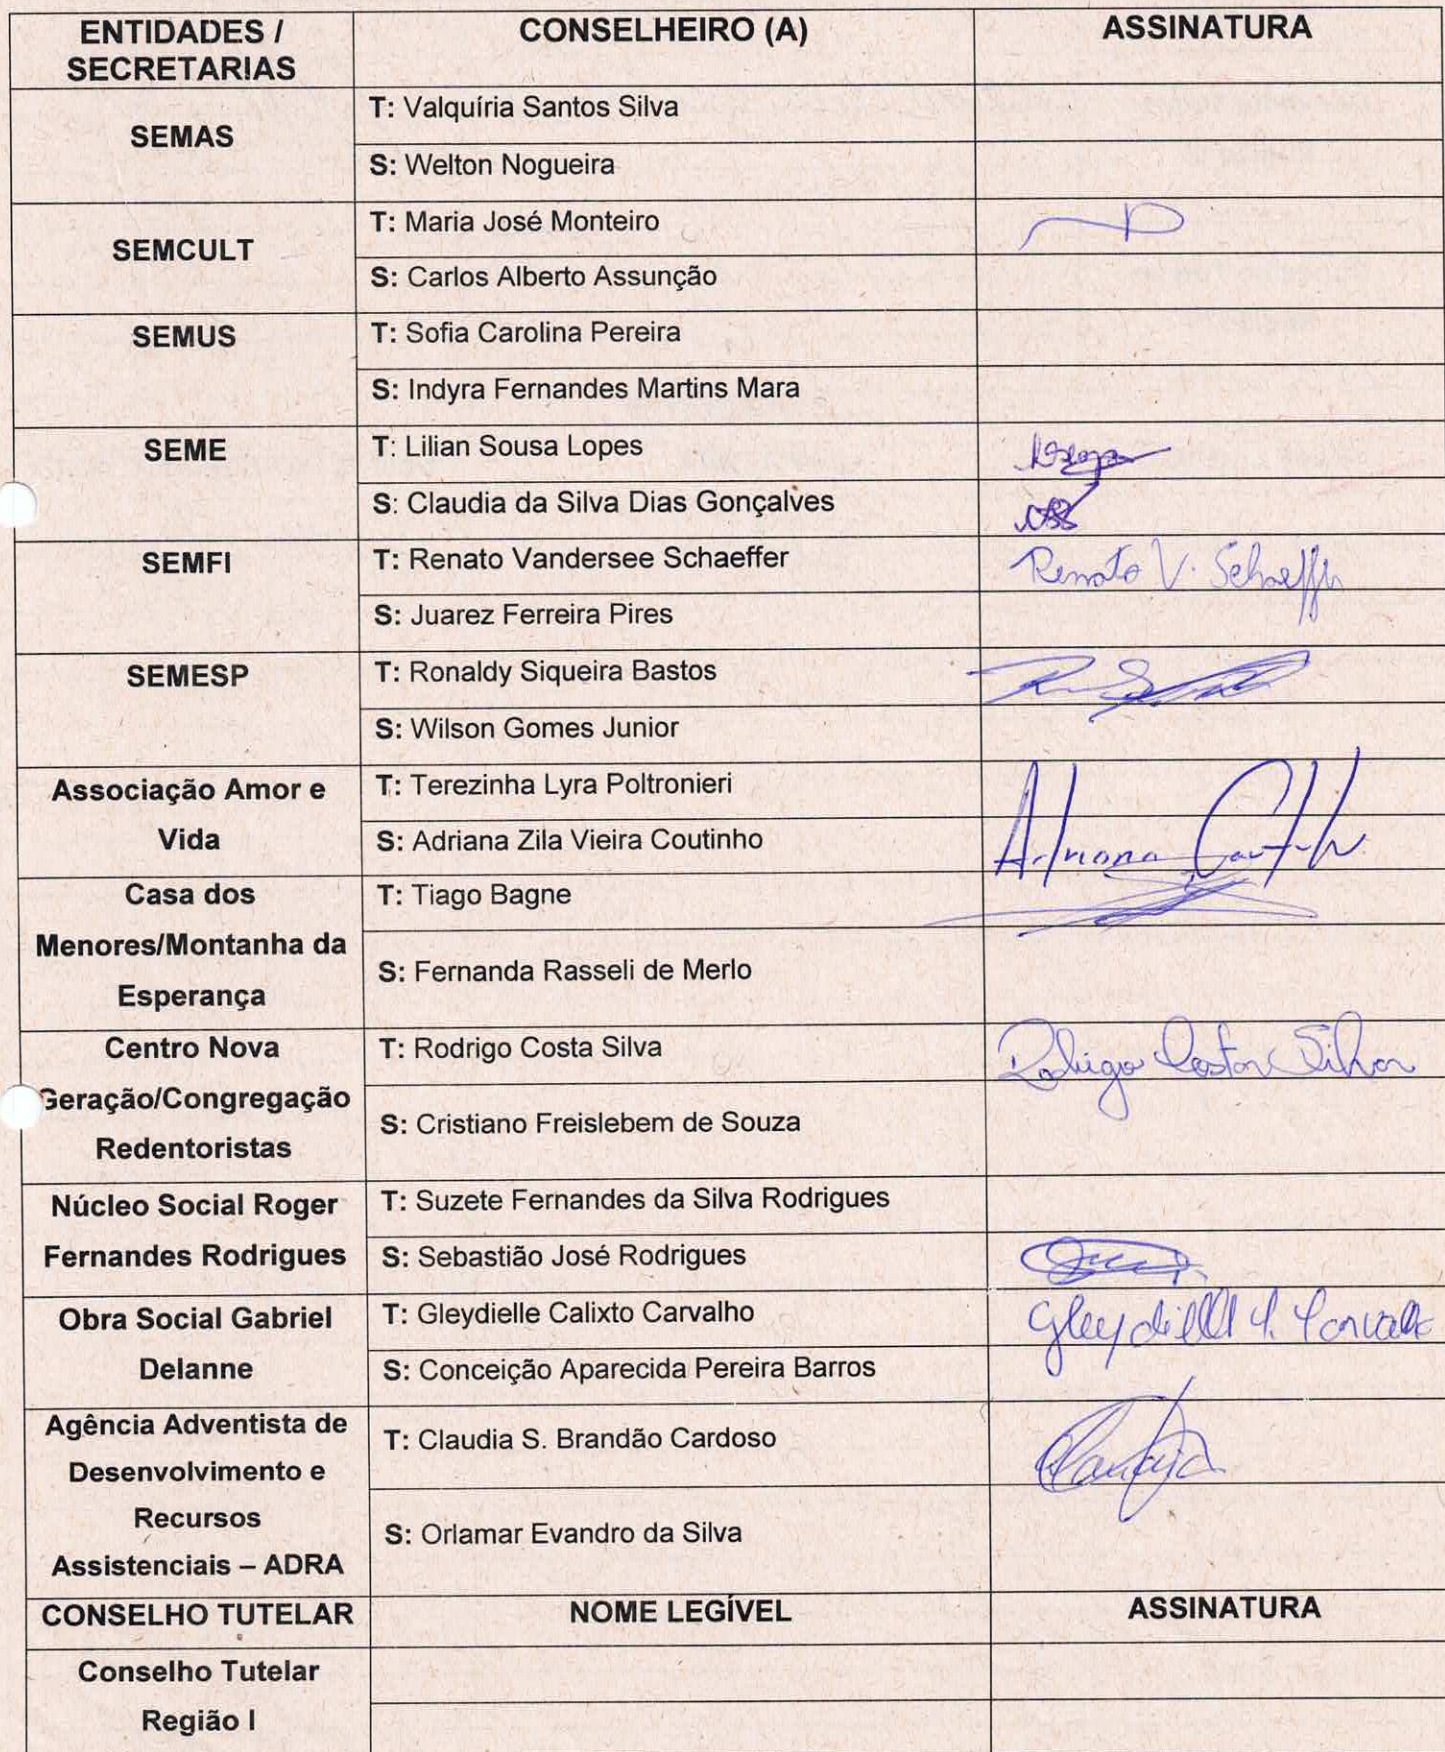 ENTIDADES / CONSELHEIRO (A) ASSINATURA
SECRETARIAS
SEMAS
T: Valquíria Santos Silva
S: Welton Nogueira
SEMCULT
T: Maria José Monteiro
S: Carlos Alberto Assunção
SEMUS
T: Sofia Carolina Pereira
S: Indyra Fernandes Martins Mara
SEME
T: Lilian Sousa Lopes
S: Claudia da Silva Dias Gonçalves
SEMFI
T: Renato Vandersee Schaeffer
Renato V. Schaeffer
S: Juarez Ferreira Pires
SEMESP
T: Ronaldy Siqueira Bastos
S: Wilson Gomes Junior
Associação Amor e
Vida
T: Terezinha Lyra Poltronieri
S: Adriana Zila Vieira Coutinho
Adriana
Casa dos
Menores/Montanha da
Esperança
T: Tiago Bagne
S: Fernanda Rasseli de Merlo
Centro Nova
Geração/Congregação
Redentoristas
T: Rodrigo Costa Silva
Rodrigo Costa Silva
S: Cristiano Freislebem de Souza
Núcleo Social Roger
Fernandes Rodrigues
T: Suzete Fernandes da Silva Rodrigues
S: Sebastião José Rodrigues
Obra Social Gabriel
Delanne
T: Gleydielle Calixto Carvalho
Gleydielle C. Carvalho
S: Conceição Aparecida Pereira Barros
Agência Adventista de
Desenvolvimento e
Recursos
Assistenciais – ADRA
T: Claudia S. Brandão Cardoso
S: Orlamar Evandro da Silva
CONSELHO TUTELAR NOME LEGÍVEL ASSINATURA
Conselho Tutelar
Região I